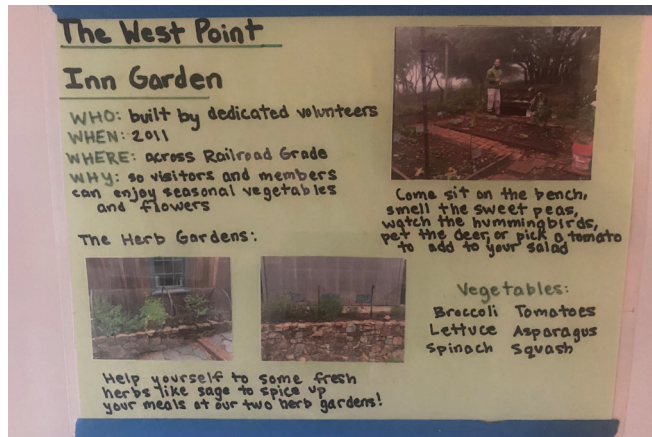 The West Point
Inn Garden
WHO: built by dedicated volunteers
WHEN: 2011
WHERE: across Railroad Grade
WHY: so visitors and members
can enjoy seasonal vegetables
and flowers
Come sit on the bench,
smell the sweet peas,
watch the hummingbirds,
pet the deer, or pick a tomato
to add to your salad
The Herb Gardens:
Vegetables:
Broccoli Tomatoes
Lettuce Asparagus
Spinach Squash
Help yourself to some fresh
herbs like sage to spice up
your meals at our two herb gardens!